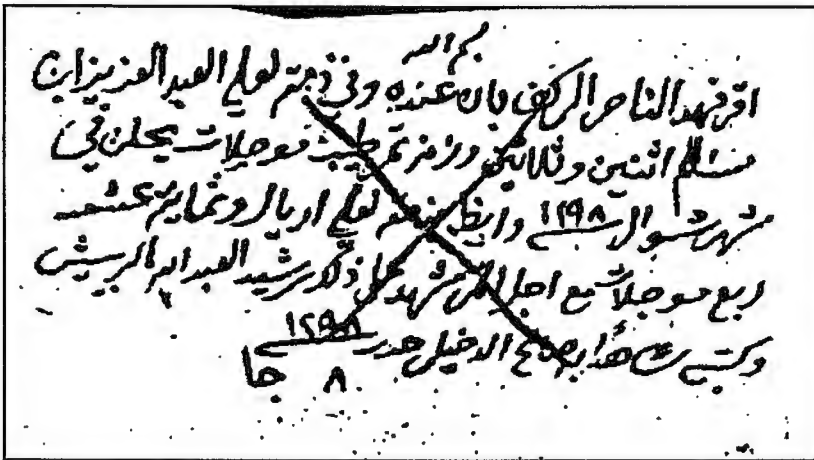 بسم الله
اقر فهد الناصر الركف بان عنده وفي ذمته لعلي العبد العزيز ابن
سالم اثنين وثلاثين وزنة تمر طيب موجلات يحلن في
شهر شوال ١٢٩٨ وايضا لعلي اريال وثمانية عشر
ربع موجلات مع اجل شهد على ذلك رشيد العبد الله
وكتبه شاهدا به صالح الدخيل حرر ١٢٩٨
٨ جا